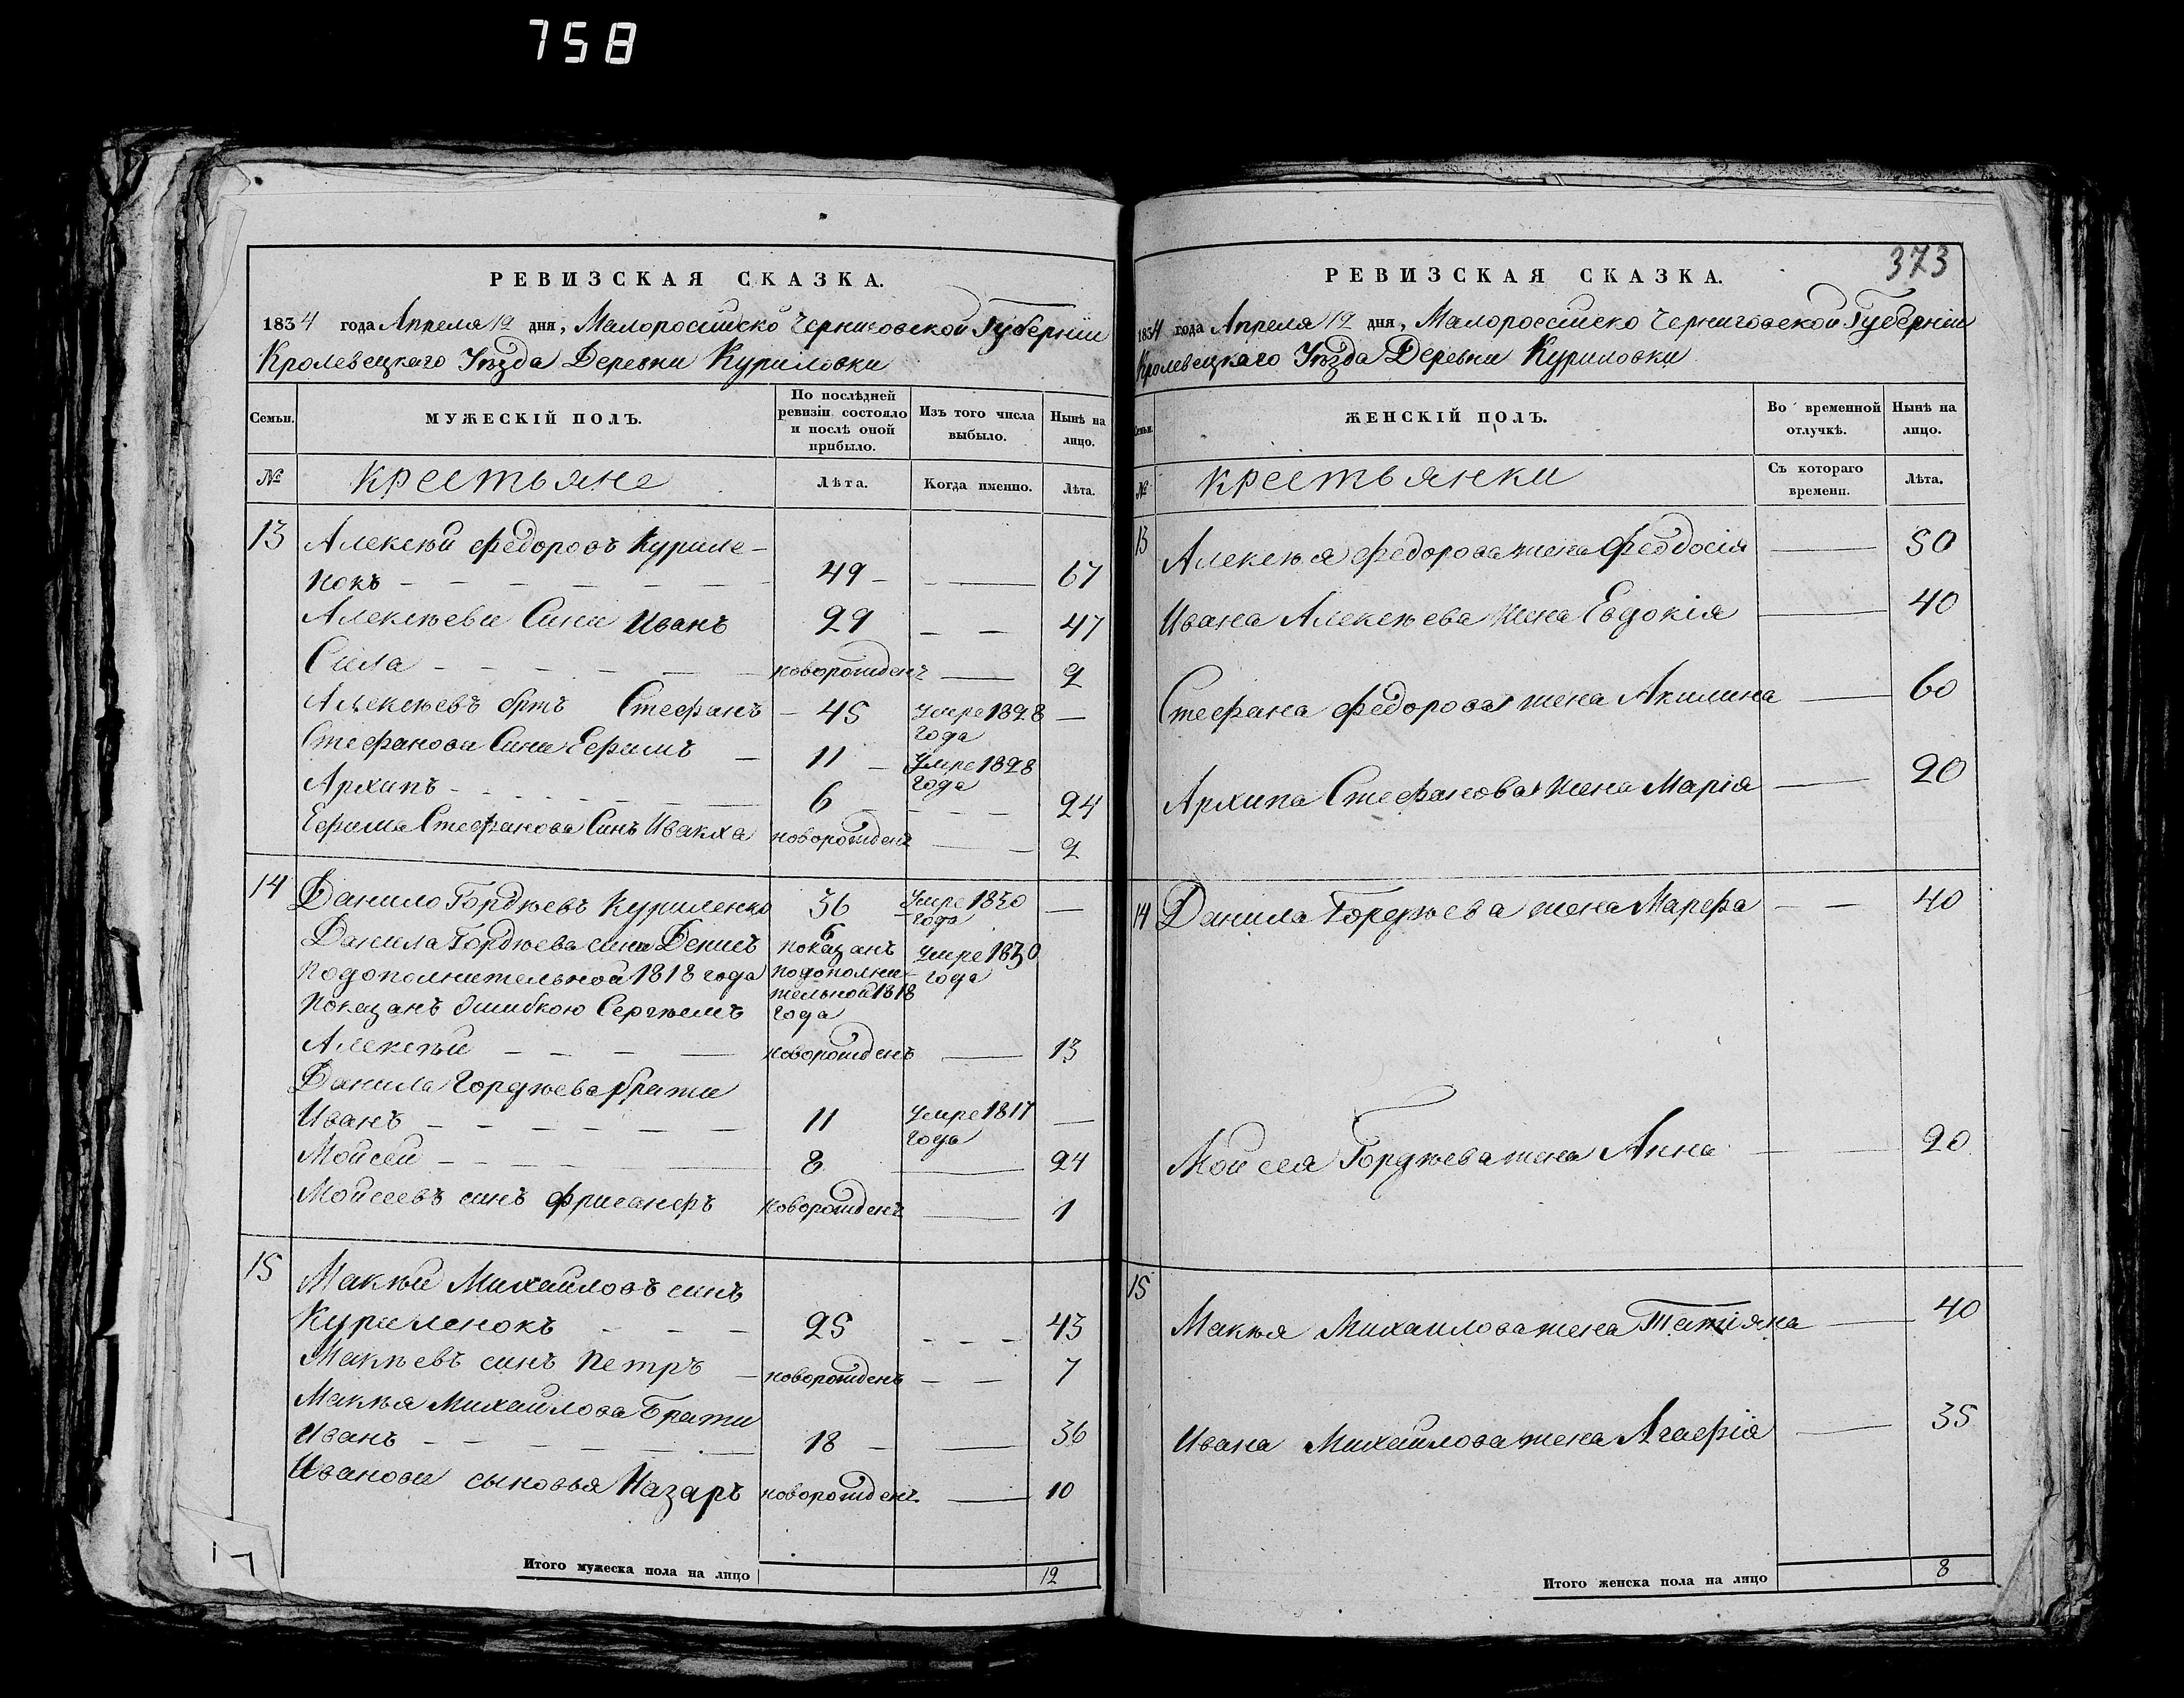 758
РЕВИЗСКАЯ СКАЗКА.
1834 года Апреля 12 дня, Малоросiйско Черниговской Губернiи
Кролевецкаго Уѣзда Деревни Куриловки
Семьи.
МУЖЕСКIЙ ПОЛЪ.
По послѣдней ревизiи состояло и послѣ оной прибыло.
Изъ того числа выбыло.
Нынѣ на лицо.
№
крестьяне
Лѣта.
Когда именно.
Лѣта.
13 Алексѣй Федоровъ Куриле-
нокъ 49 67
Алексѣеви Сини Иванъ 29 47
Сила новорожденъ 2
Алексѣевъ братъ Стефанъ 45 Умре 1828 года
Стефанови Сини Ефимъ 11 Умре 1828 года
Архипъ 6 24
Ефима Стефанова Синъ новорожденъ 2
14 Данило Гордѣевъ Куриленко 36 Умре 1830 года
Данила Гордѣева сини Денисъ 6 показанъ Умре 1830
подополнительной 1818 года подополни- года
показанъ ошибкою Сергѣемъ тельной 1818 года
Алексѣй новорожденъ 13
Данила Гордѣева брати
Иванъ 11 Умре 1817 года
Мойсей 8 24
Мойсеевъ синъ новорожденъ 1
15 Макѣй Михайловъ синъ
Куриленокъ 25 43
Макѣевъ синъ Петръ новорожденъ 7
Макѣя Михайлова Брати
Иванъ 18 36
Иванови сыновья Назаръ новорожденъ 10
Итого мужеска пола на лицо 12
373
РЕВИЗСКАЯ СКАЗКА.
1834 года Апреля 12 дня, Малороссiйско Черниговской Губернiи
Кролевецкаго Уѣзда Деревни Куриловки
Семьи.
ЖЕНСКIЙ ПОЛЪ.
Во временной отлучкѣ.
Нынѣ на лицо.
№
крестьянки
Съ котораго времени.
Лѣта.
13 Алексѣя Федорова жена Феодосiя 50
Ивана Алексѣева жена Евдокiя 40
Стефана Федорова жена Акилина 60
Архипа Стефанова жена Марiя 20
14 Данила Гордѣева жена Марефа 40
Мойсея Гордѣева жена Анна 20
15 Макѣя Михаилова жена Татiяна 40
Ивана Михайлова жена Агафiя 35
Итого женска пола на лицо 8